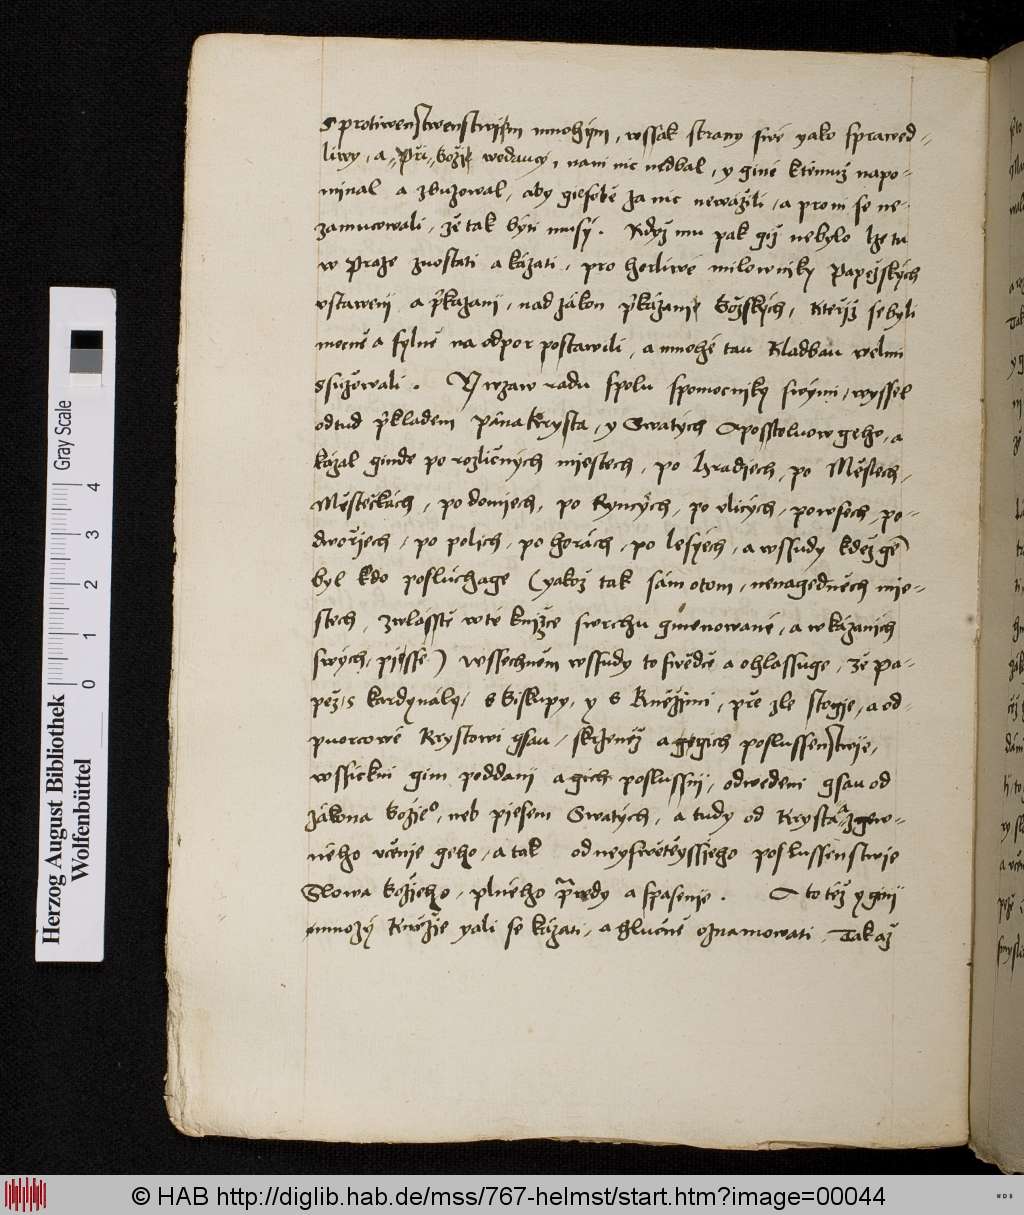 s protiwenstwenstwijm mnohými, wssak strany swé yako sprawed-
liwy, a při božj weda ucý, nani nic nedbal, y giné ktémuž napo-
minal a zbuzowal, aby gie sobě za nic newážili, a proni se ne-
zamucowali, že tak býti musý. Kdyź mu pak giź nebylo lze tu
w Praze zuostati a kázati, pro horliwé milowniky Papežských
vstawenij a přikázanij, nad zákon přikázanij Božských, kteřjź se byli
mocně a sylně na odpor postawili, a mnohé tau kladbau welmi
ssužowali. Y wzaw radu spolu spomocniky swými, wyssel
odtud přikladem pána krysta, y Swatých Aposstoluow geho, a
kázal ginde po rozličných miestech, po hradjech, po Městech,
Městečkách, po domjech, po Ryncých, po vlicých, po wsech, po-
dwořjech, po polích, po horách, po lesých, a wssudy kdež gen
byl kdo poslúchage (yakož tak sám otom, nenagedněch mie-
stech, zwlásstě wté knižce swrchu gmenowané, a w kázaních
swých, piésse) wssechněm wssudy to swědčé a ohlassuge, že pa-
pěž, s kardynály, s biskupy, y s kněžimi, pře zle stogje, a od-
puorcowé krystowi gsau, skrzeněž a gegich poslussenstwije,
wssickni gim poddanij a gich poslussnij, odwedeni gsau od
zákona božieo, neb pjesem Swatých, a tudy od krysta a zgew-
ného včenje geho, a tak od neyswětěyssjeho poslussenstwie
Slowa božjeho, plného prawdy a spasenje. A to též y ginij
mnozý kněžie yali se kázati, a hlučně oznamowati, Takaž
Herzog August Bibliothek
Wolfenbüttel
Gray Scale
0 1 2 3 4
© HAB http://diglib.hab.de/mss/767-helmst/start.htm?image=00044